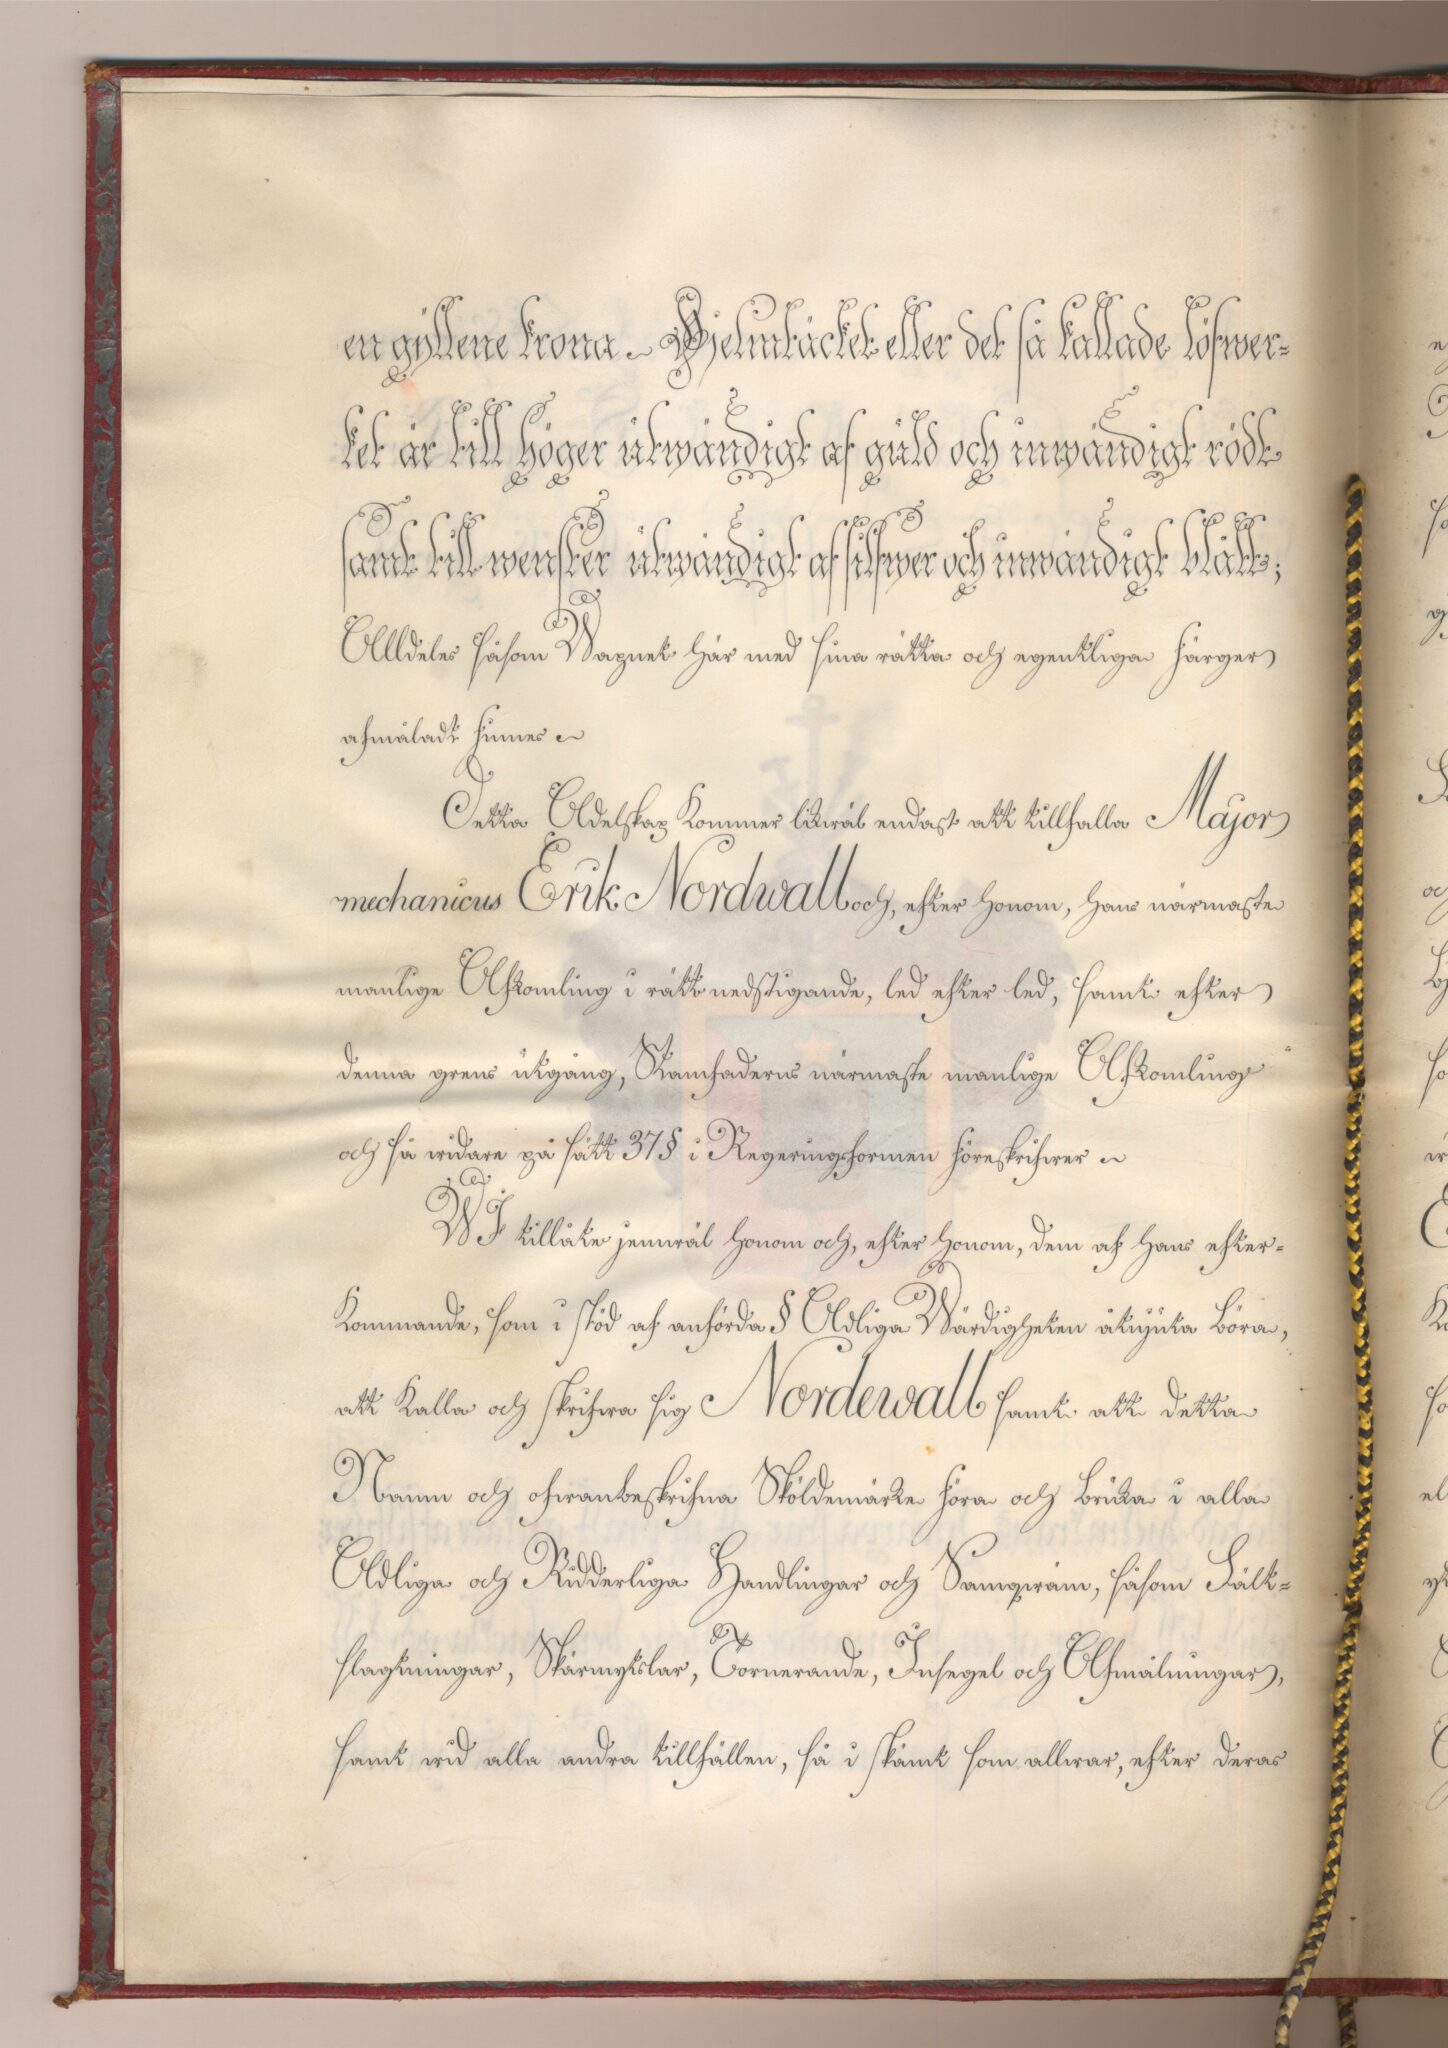 en gyllene krona. Hjelmtäcket eller det så kallade löfwer-
ket är till höger utwändigt af guld och inwändigt rödt
samt till wenster utwändigt af silfwer och inwändigt blått;
Alldeles såsom Wapnet här med sina rätta och egentliga färger
afmåladt finnes.
Detta Adelskap kommer likwäl endast att tillfalla Major
mechanicus Erik Nordwall och, efter honom, hans närmaste
manlige Afkomling i rätt nedstigande, led efter led, samt efter
denna grens utgång, Stamfaderns närmaste manlige Afkomling
och så widare på sätt 37 § i Regeringsformen föreskrifwer.
WI tillåte jemwäl honom och, efter honom, dem af hans efter-
kommande, som i stöd af anförda § Adliga Wärdigheten åtnjuta böra,
att kalla och skrifwa sig Nordewall samt att detta
Namn och ofwanbeskrifna Sköldemärke föra och bruka i alla
Adliga och Ridderliga Handlingar och Samqwäm, såsom Fält-
slagtningar, Skärmytslar, Tornerande, Insegel och Afmålningar,
samt wid alla andra tillfällen, så i skämt som allwar, efter deras